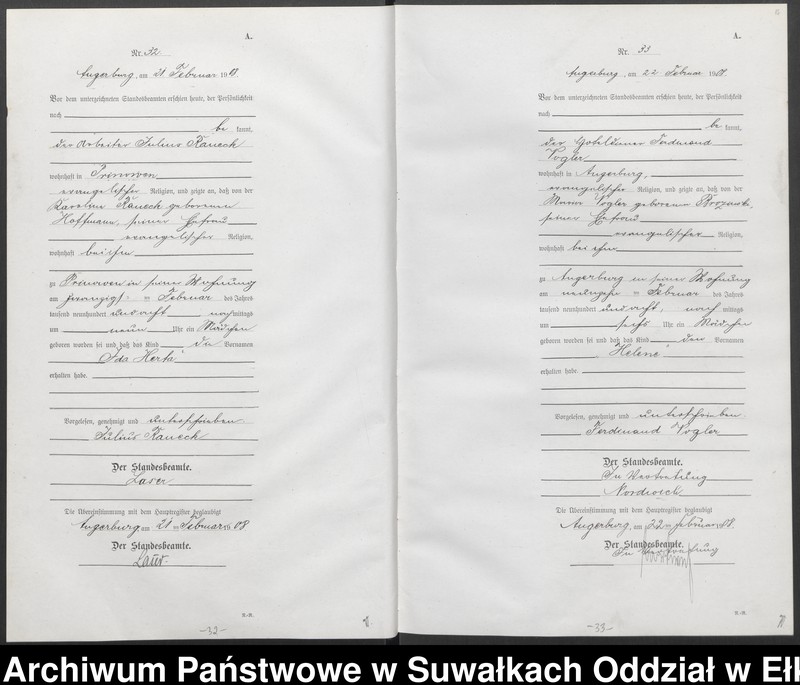 A.
Nr. 32
Angerburg, am 21 Februar 1908.
Vor dem unterzeichneten Standesbeamten erschien heute, der Persönlichkeit
nach
be kannt,
der Arbeiter Julius Kauech
wohnhaft in Prinowen
evangelischer Religion, und zeigte an, daß von der
Karoline Kauech geborenen
Hoffmann, seiner Ehefrau
evangelischer Religion,
wohnhaft bei ihm
zu Prinowen in seiner Wohnung
am zwanzigsten Februar des Jahres
tausend neunhundert und acht nachmittags
um neun Uhr ein Mädchen
geboren worden sei und daß das Kind die Vornamen
Ida Herta
erhalten habe.
Vorgelesen, genehmigt und unterschrieben
Julius Kauech
Der Standesbeamte.
Die Übereinstimmung mit dem Hauptregister beglaubigt
Angerburg, am 21ten Februar 1908
Der Standesbeamte.
-32-
A.
Nr. 33
Angerburg, am 22 Februar 1908.
Vor dem unterzeichneten Standesbeamten erschien heute, der Persönlichkeit
nach
be kannt,
der Ferdinand
Vogler
wohnhaft in Angerburg,
evangelischer Religion, und zeigte an, daß von der
Vogler geborenen
seiner Ehefrau
evangelischer Religion,
wohnhaft bei ihm
zu Angerburg in seiner Wohnung
am neunzehnten Februar des Jahres
tausend neunhundert und acht, nachmittags
um sechs Uhr ein Mädchen
geboren worden sei und daß das Kind den Vornamen
Helene
erhalten habe.
Vorgelesen, genehmigt und unterschrieben
Ferdinand Vogler
Der Standesbeamte.
In Vertretung
Die Übereinstimmung mit dem Hauptregister beglaubigt
Angerburg, am 22ten Februar 1908.
Der Standesbeamte.
In Vertretung
-33-
Archiwum Państwowe w Suwałkach Oddział w Ełk